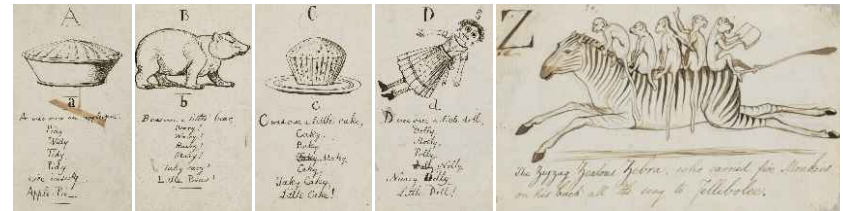 A
a
A was once an apple pie,
Pidy
Widy
Tidy
Pidy
Nice insidy
Apple Pie
B
b
B was once a little bear,
Beary!
Wary!
Hairy!
Beary!
Taky cary!
Little Bear!
C
c
C was once a little cake,
Caky
Baky
Maky
Caky
Taky Caky,
Little Cake!
D
d
D was once a little doll,
Dolly
Molly
Polly
Nolly
Nursy Dolly
Little Doll!
Z
The Zigzag Zealous Zebra, who carried five Monkeys
on his back all the way to Jellibolee.